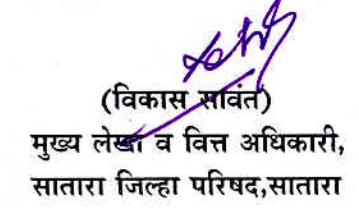 (विकास सावंत)
मुख्य लेखा व वित्त अधिकारी,
सातारा जिल्हा परिषद,सातारा